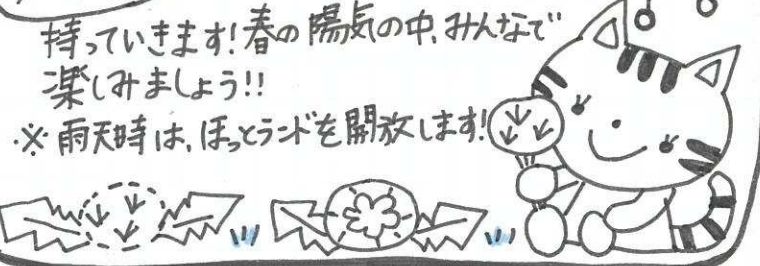 持っていきます!春の陽気の中、みんなで
楽しみましょう!!
※雨天時は、ほっとランドを開放します!